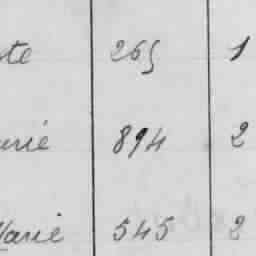 te 265 1
arie 894 2
Marie 545 2